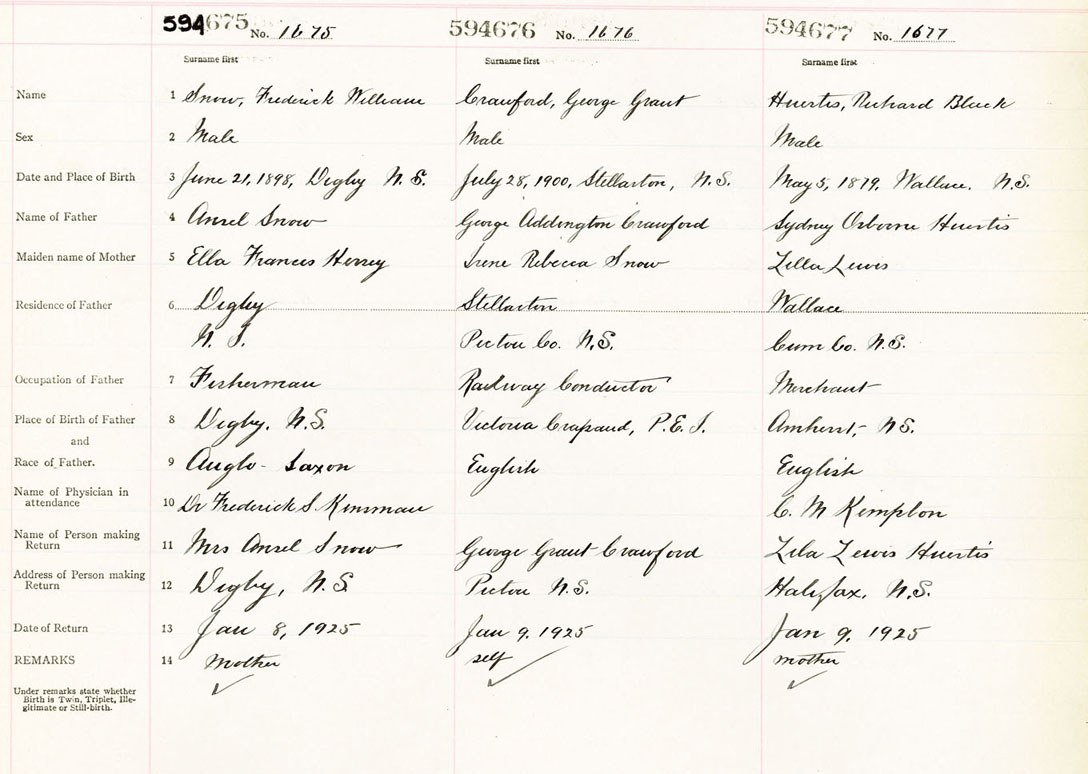 594675 No. 1675 594676 No. 1676 594677 No. 1677
Surname first Surname first Surname first
Name 1 Snow, Frederick William Crawford, George Grant Huertis, Richard Black
Sex 2 Male Male Male
Date and Place of Birth 3 June 21, 1898, Digby N.S. July 28, 1900, Stellarton, N.S. May 5, 1879, Wallace. N.S.
Name of Father 4 Ansel Snow George Addington Crawford Sydney Osborne Huertis
Maiden name of Mother 5 Ella Frances Hersey Irene Rebecca Snow Zilla Lewis
Residence of Father 6 Digby Stellarton Wallace
N.S. Pictou Co. N.S. Cum Co. N.S.
Occupation of Father 7 Fisherman Railway Conductor Merchant
Place of Birth of Father 8 Digby, N.S. Victoria Crapaud, P.E.I. Amherst, N.S.
and
Race of Father. 9 Anglo-Saxon English English
Name of Physician in
attendance 10 Dr Frederick S. Kinsman C. M Kimpton
Name of Person making
Return 11 Mrs Ansel Snow George Grant Crawford Zila Lewis Huertis
Address of Person making
Return 12 Digby, N.S. Pictou N.S. Halifax, N.S.
Date of Return 13 Jan 8, 1925 Jan 9, 1925 Jan 9, 1925
REMARKS 14 Mother self mother
Under remarks state whether
Birth is Twin, Triplet, Ille-
gitimate or Still-birth.